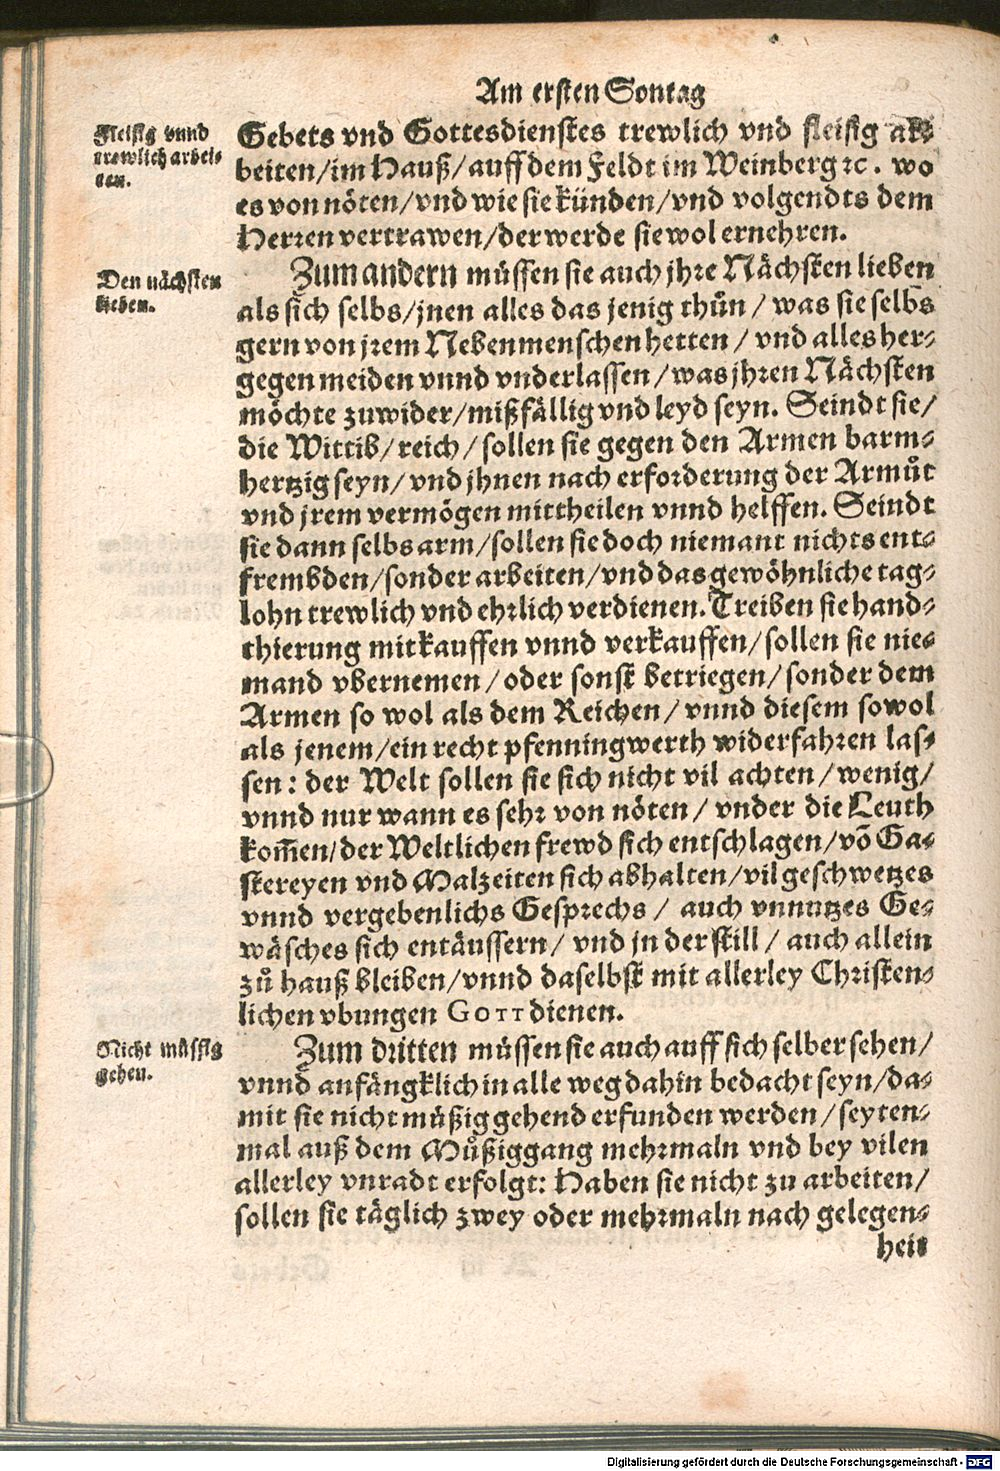 Am ersten Sontag
Fleissig vnnd
trewlich arbei-
ten.
Gebets vnd Gottesdienstes trewlich vnd fleissig ar-
beiten/im Hauß/auff dem Feldt im Weinberg ꝛc. wo
es von nöten/vnd wie sie künden/vnd volgendts dem
Herren vertrawen/der werde sie wol ernehren.
Den nächsten
lieben.
Zum andern müssen sie auch jhre Nächsten lieben
als sich selbs/jnen alles das jenig thůn / was sie selbs
gern von jrem Nebenmenschen hetten / vnd alles her-
gegen meiden vnnd vnderlassen/was jhren Nächsten
möchte zuwider/mißfällig vnd leyd seyn. Seindt sie/
die Wittib/reich/sollen sie gegen den Armen barm-
hertzig seyn/vnd jhnen nach erforderung der Armůt
vnd jrem vermögen mittheilen vnnd helffen. Seindt
sie dann selbs arm/sollen sie doch niemant nichts ent-
frembden/sonder arbeiten/vnd das gewöhnliche tag-
lohn trewlich vnd ehrlich verdienen. Treiben sie hand-
thierung mit kauffen vnnd verkauffen/sollen sie nie-
mand vbernemen/oder sonst betriegen/sonder dem
Armen so wol als dem Reichen/vnnd diesem sowol
als jenem/ein recht pfenningwerth widerfahren las-
sen: der Welt sollen sie sich nicht vil achten/wenig/
vnnd nur wann es sehr von nöten/ vnder die Leuth
kom̃en/der Weltlichen frewd sich entschlagen/võ Ga-
stereyen vnd Malzeiten sich abhalten/vil geschwetzes
vnnd vergebenlichs Gesprechs/ auch vnnutzes Ge-
wäsches sich entäussern/ vnd jn der still/ auch allein
zů hauß bleiben/vnnd daselbst mit allerley Christen-
lichen vbungen GOTT dienen.
Nicht müssig
gehen.
Zum dritten müssen sie auch auff sich selber sehen/
vnnd anfängklich in alle weg dahin bedacht seyn/da-
mit sie nicht müßig gehend erfunden werden/seyten-
mal auß dem Můßiggang mehrmaln vnd bey vilen
allerley vnradt erfolgt: Haben sie nicht zu arbeiten/
sollen sie täglich zwey oder mehrmaln nach gelegen-
heit
Digitalisierung gefördert durch die Deutsche Forschungsgemeinschaft - DFG